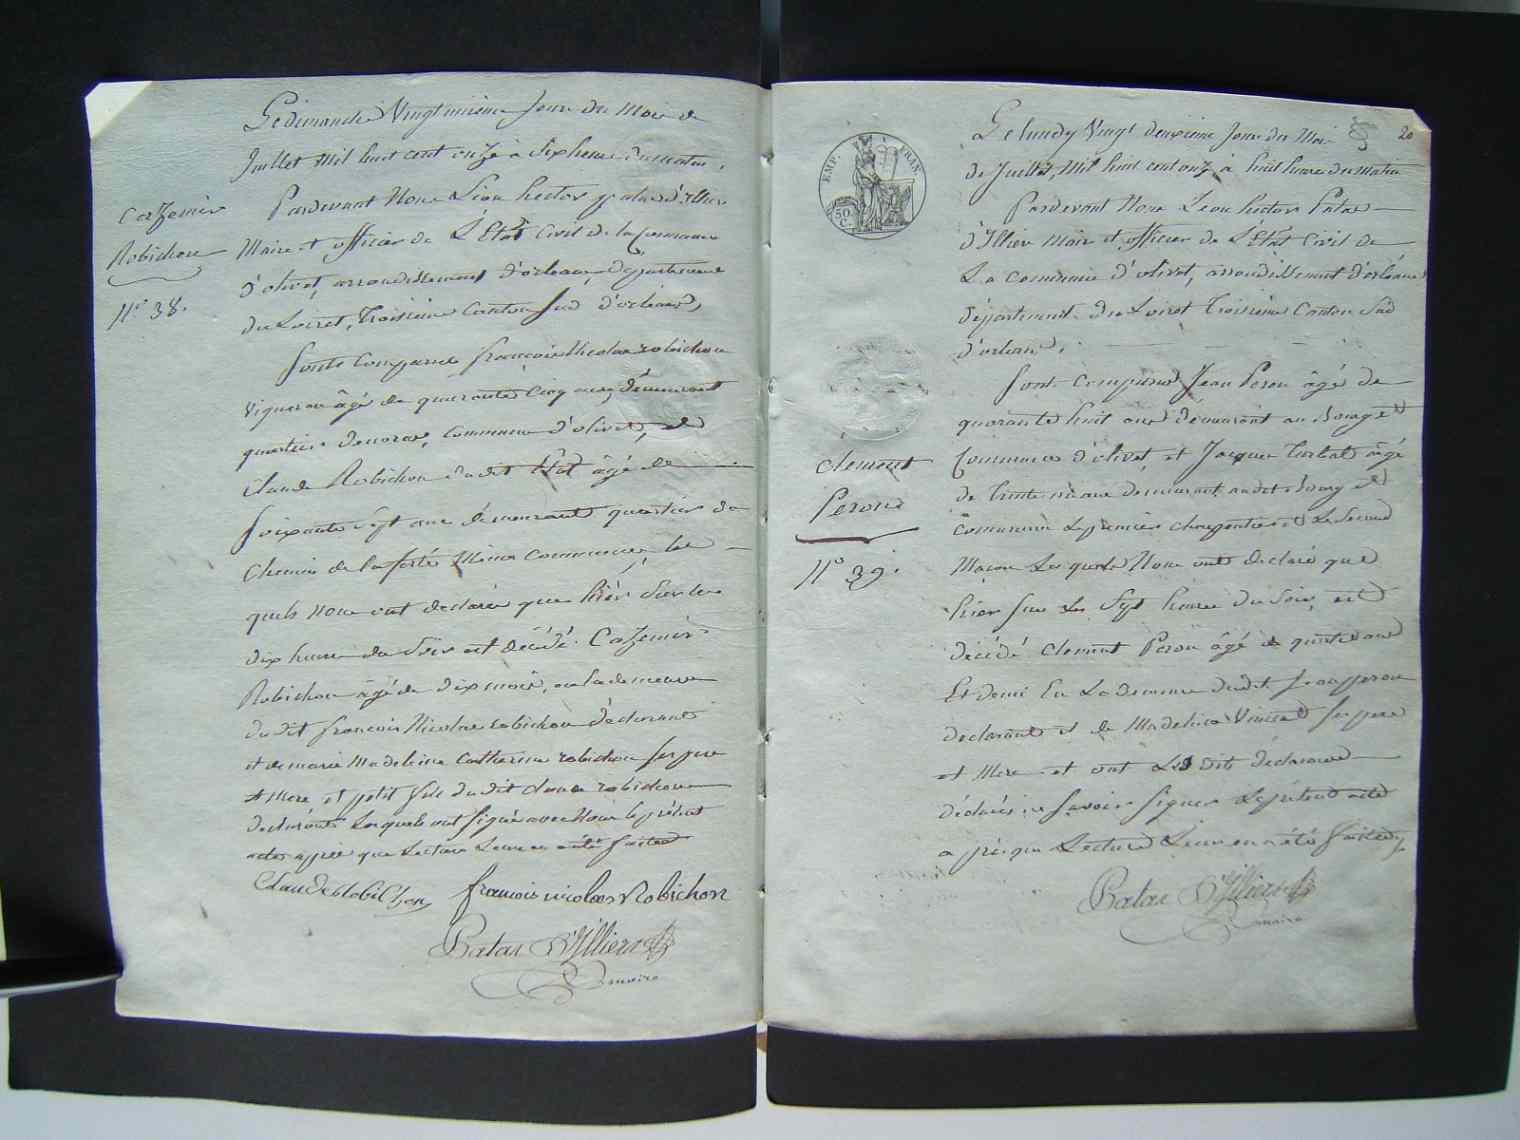 Cazemir
Robichon
N° 38.
Le dimanche Vingt unième Jour du Mois de
Juillet Mil huit cent onze à Six heure du matin,
Pardevant Nous Léon hector patas d'Illiers
Maire et officier de L'Etat Civil de la Commune
d'olivet, arrondissement d'orleans, département
du Loiret, Troisième Canton Sud d'orleans,
Sont Comparus françois Nicolas robichon
vigneron âgé de quarante Cinq ans, demeurant
quartier commune d'olivet, et
Claude Robichon dudit Etat âgé de
Soixante sept ans demeurant quartier du
Chemin de la ferté Même commune, les
quels nous ont declaré que hier Sur les
dix heures du Soir est décédé Cazemir
Robichon âgé de dix mois, en la demeure
dudit françois Nicolas robichon déclarant
et de marie Madeleine Catherine robichon Ses pere
et Mere et petit fils dudit claude robichon
declarants Lesquels ont Signé avec Nous le présent
acte après que Lecture Leur en a été faite
Claude Robichon françois nicolas Robichon
Patas D'Illiers
maire
EMP. FRAN.
50 C.
20
Clement
Peron
N° 39.
Le lundy Vingt deuxième Jour du Mois
de Juillet, Mil huit cent onze à huit heure du Matin
Pardevant Nous Leon hector Patas
d'Illiers Maire et officier de L'Etat Civil de
La commune d'olivet, arrondissement d'orléans
département du Loiret Troisième Canton Sud
d'orleans,
Sont Comparus Jean Peron âgé de
quarante huit ans demeurant au Bourg et
Commune d'olivet, et Jacques Turbat âgé
de Trente six ans demeurant audit Bourg et
Commune Le premier charpentier et Le Second
Maçon Les quels Nous ont declaré que
hier Sur Les Sept heures du Soir, est
décédé Clement Peron âgé de quatre ans
Et demi En La demeure dudit Jean peron
declarant et de Madeleine Vincent Ses pere
et Mere et ont Les dits déclarans
déclarés ne Savoir Signer Le présent acte
après que Lecture Leur en a été faite
Patas D'Illiers
maire